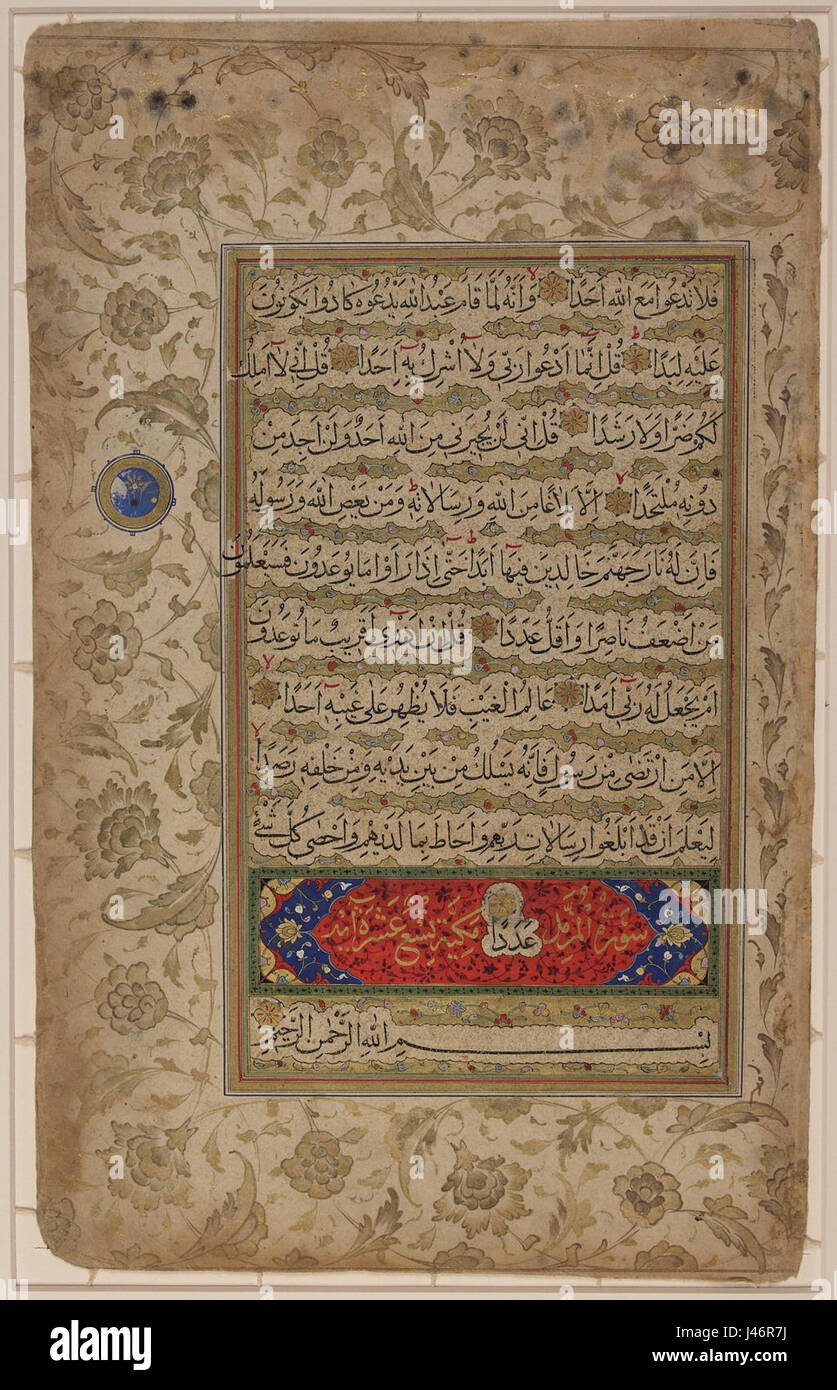 فلا تدعوا مع الله احدا وانه لما قام عبد الله يدعوه كادوا يكونون
عليه لبدا قل انما ادعوا ربى ولا اشرك به احدا قل انى لا املك
لكم ضرا ولا رشدا قل انى لن يجيرنى من الله احد ولن اجد من
دونه ملتحدا الا بلاغا من الله ورسالاته ومن يعص الله ورسوله
فان له نار جهنم خالدين فيها ابدا حتى اذا راوا ما يوعدون فسيعلمون
من اضعف ناصرا واقل عددا قل ان ادرى اقريب ما توعدون
ام يجعل له ربى امدا عالم الغيب فلا يظهر على غيبه احدا
الا من ارتضى من رسول فانه يسلك من بين يديه ومن خلفه رصدا
ليعلم ان قد ابلغوا رسالات ربهم واحاط بما لديهم واحصى كل شئ
سورة المزمل عددا مكية تسع عشرة آية
بسم الله الرحمن الرحيم
alamy
a
alamy stock photo
Image ID: J46R7J
www.alamy.com